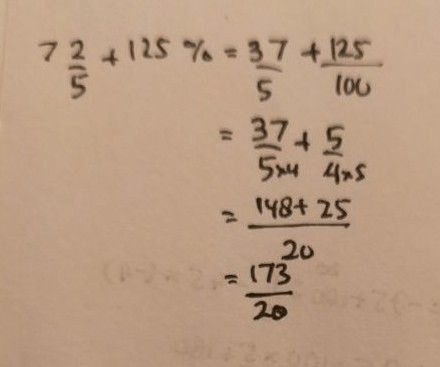 7 2/5 + 125 % = 37/5 + 125/100
= 37/5×4 + 5/4×5
= 148+25/20
= 173/20